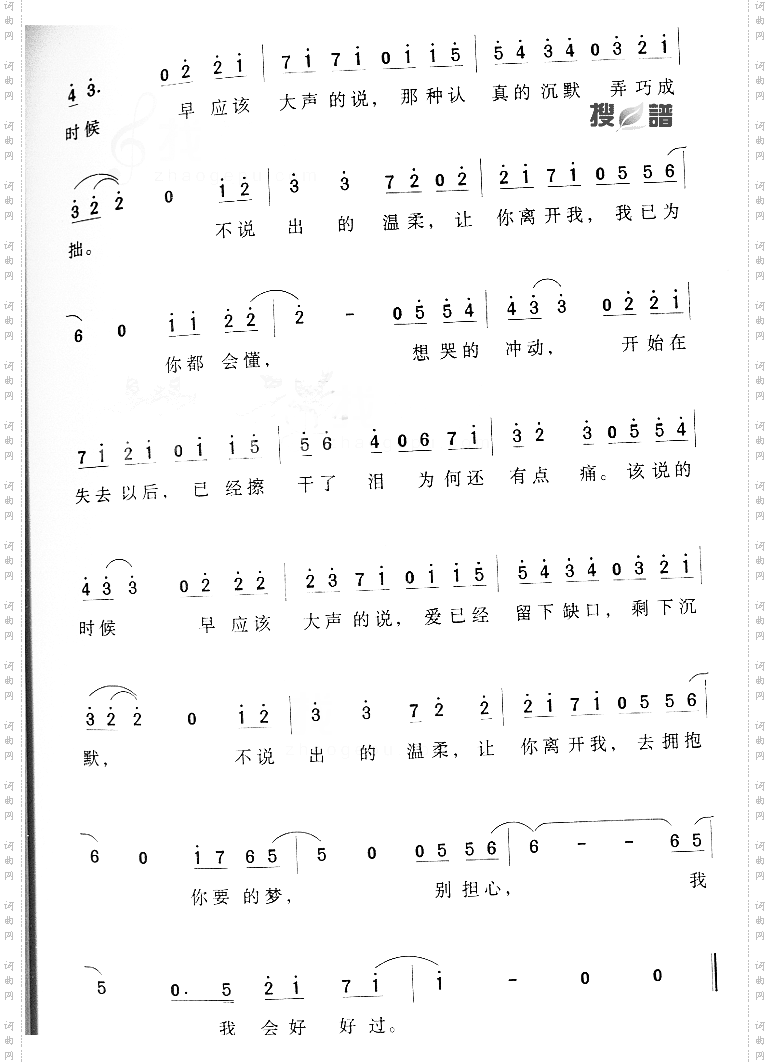 4 3. 0 2 2 1 | 7 1 7 1 0 1 1 5 | 5 4 3 4 0 3 2 1 |
时候 早 应该 大声的说, 那种认 真的沉默 弄巧成
搜 譜
3 2 2 0 1 2 | 3 3 7 2 0 2 | 2 1 7 1 0 5 5 6
拙。 不说 出 的 温柔, 让 你离开我, 我已为
6 0 1 1 2 2 | 2 - 0 5 5 4 | 4 3 3 0 2 2 1
你都 会懂, 想哭的 冲动, 开始在
7 1 2 1 0 1 1 5 | 5 6 4 0 6 7 1 | 3 2 3 0 5 5 4
失去以后, 已经擦 干了 泪 为何还 有点 痛。该说的
4 3 3 0 2 2 2 | 2 3 7 1 0 1 1 5 | 5 4 3 4 0 3 2 1
时候 早 应该 大声的说, 爱已经 留下缺口, 剩下沉
3 2 2 0 1 2 | 3 3 7 2 2 | 2 1 7 1 0 5 5 6
默, 不说 出 的 温柔, 让 你离开我, 去拥抱
6 0 1 7 6 5 | 5 0 0 5 5 6 | 6 - - 6 5
你要 的梦, 别担心, 我
5 0. 5 2 1 7 1 | 1 - 0 0 ‖
我 会好 好过。
词曲网